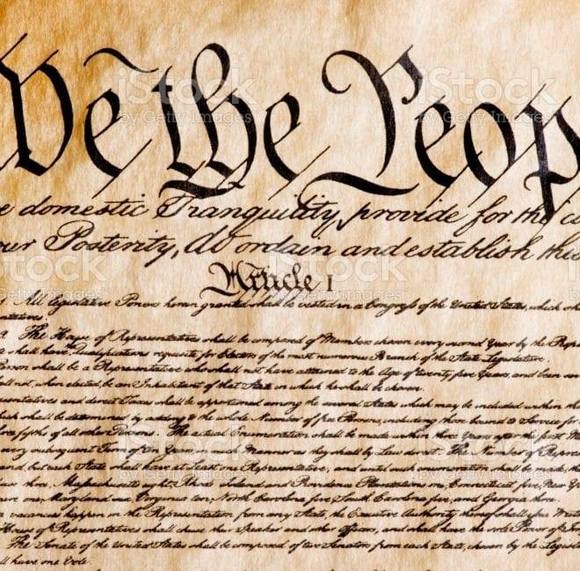 We the Peop
e domestic Tranquility, provide for the co
our Posterity, do ordain and establish this
Article I
All legislative Powers herein granted shall be vested in a Congress of the United States, which
The House of Representatives shall be composed of Members chosen every second Year by the
shall have Qualifications requisite for Electors of the most numerous Branch of the State Legislature.
Person shall be a Representative who shall not have attained to the Age of twenty five Years, and been
shall not, when elected, be an Inhabitant of that State in which he shall be chosen.
and direct Taxes shall be apportioned among the several States which may be included within
shall be determined by adding to the whole Number of free Persons, including those bound to Service for
fifths of all other Persons. The actual Enumeration shall be made within three Years after the first
every subsequent Term of ten Years, in such Manner as they shall by Law direct. The Number of
but each State shall have at Least one Representative; and until such enumeration shall be made, the
three, Massachusetts eight, Rhode Island and Providence Plantations one, Connecticut five, New York
one, Maryland six, Virginia ten, North Carolina five, South Carolina five, and Georgia three.
vacancies happen in the Representation from any State, the Executive Authority thereof shall issue
House of Representatives shall chuse their Speaker and other Officers; and shall have the sole Power of
The Senate of the United States shall be composed of two Senators from each State, chosen by the
shall have one Vote.
iStock
by Getty Images